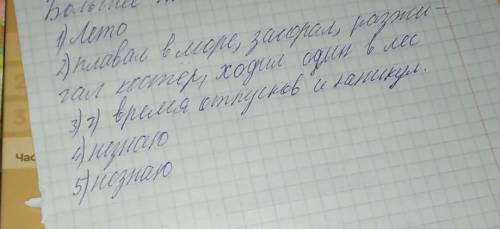 Большие
1) Лето
2) плавал в море, загорал, разжи-
гал костер, ходил один в лес
3) г) время отпусков и каникул.
4) незнаю
5) незнаю
Час